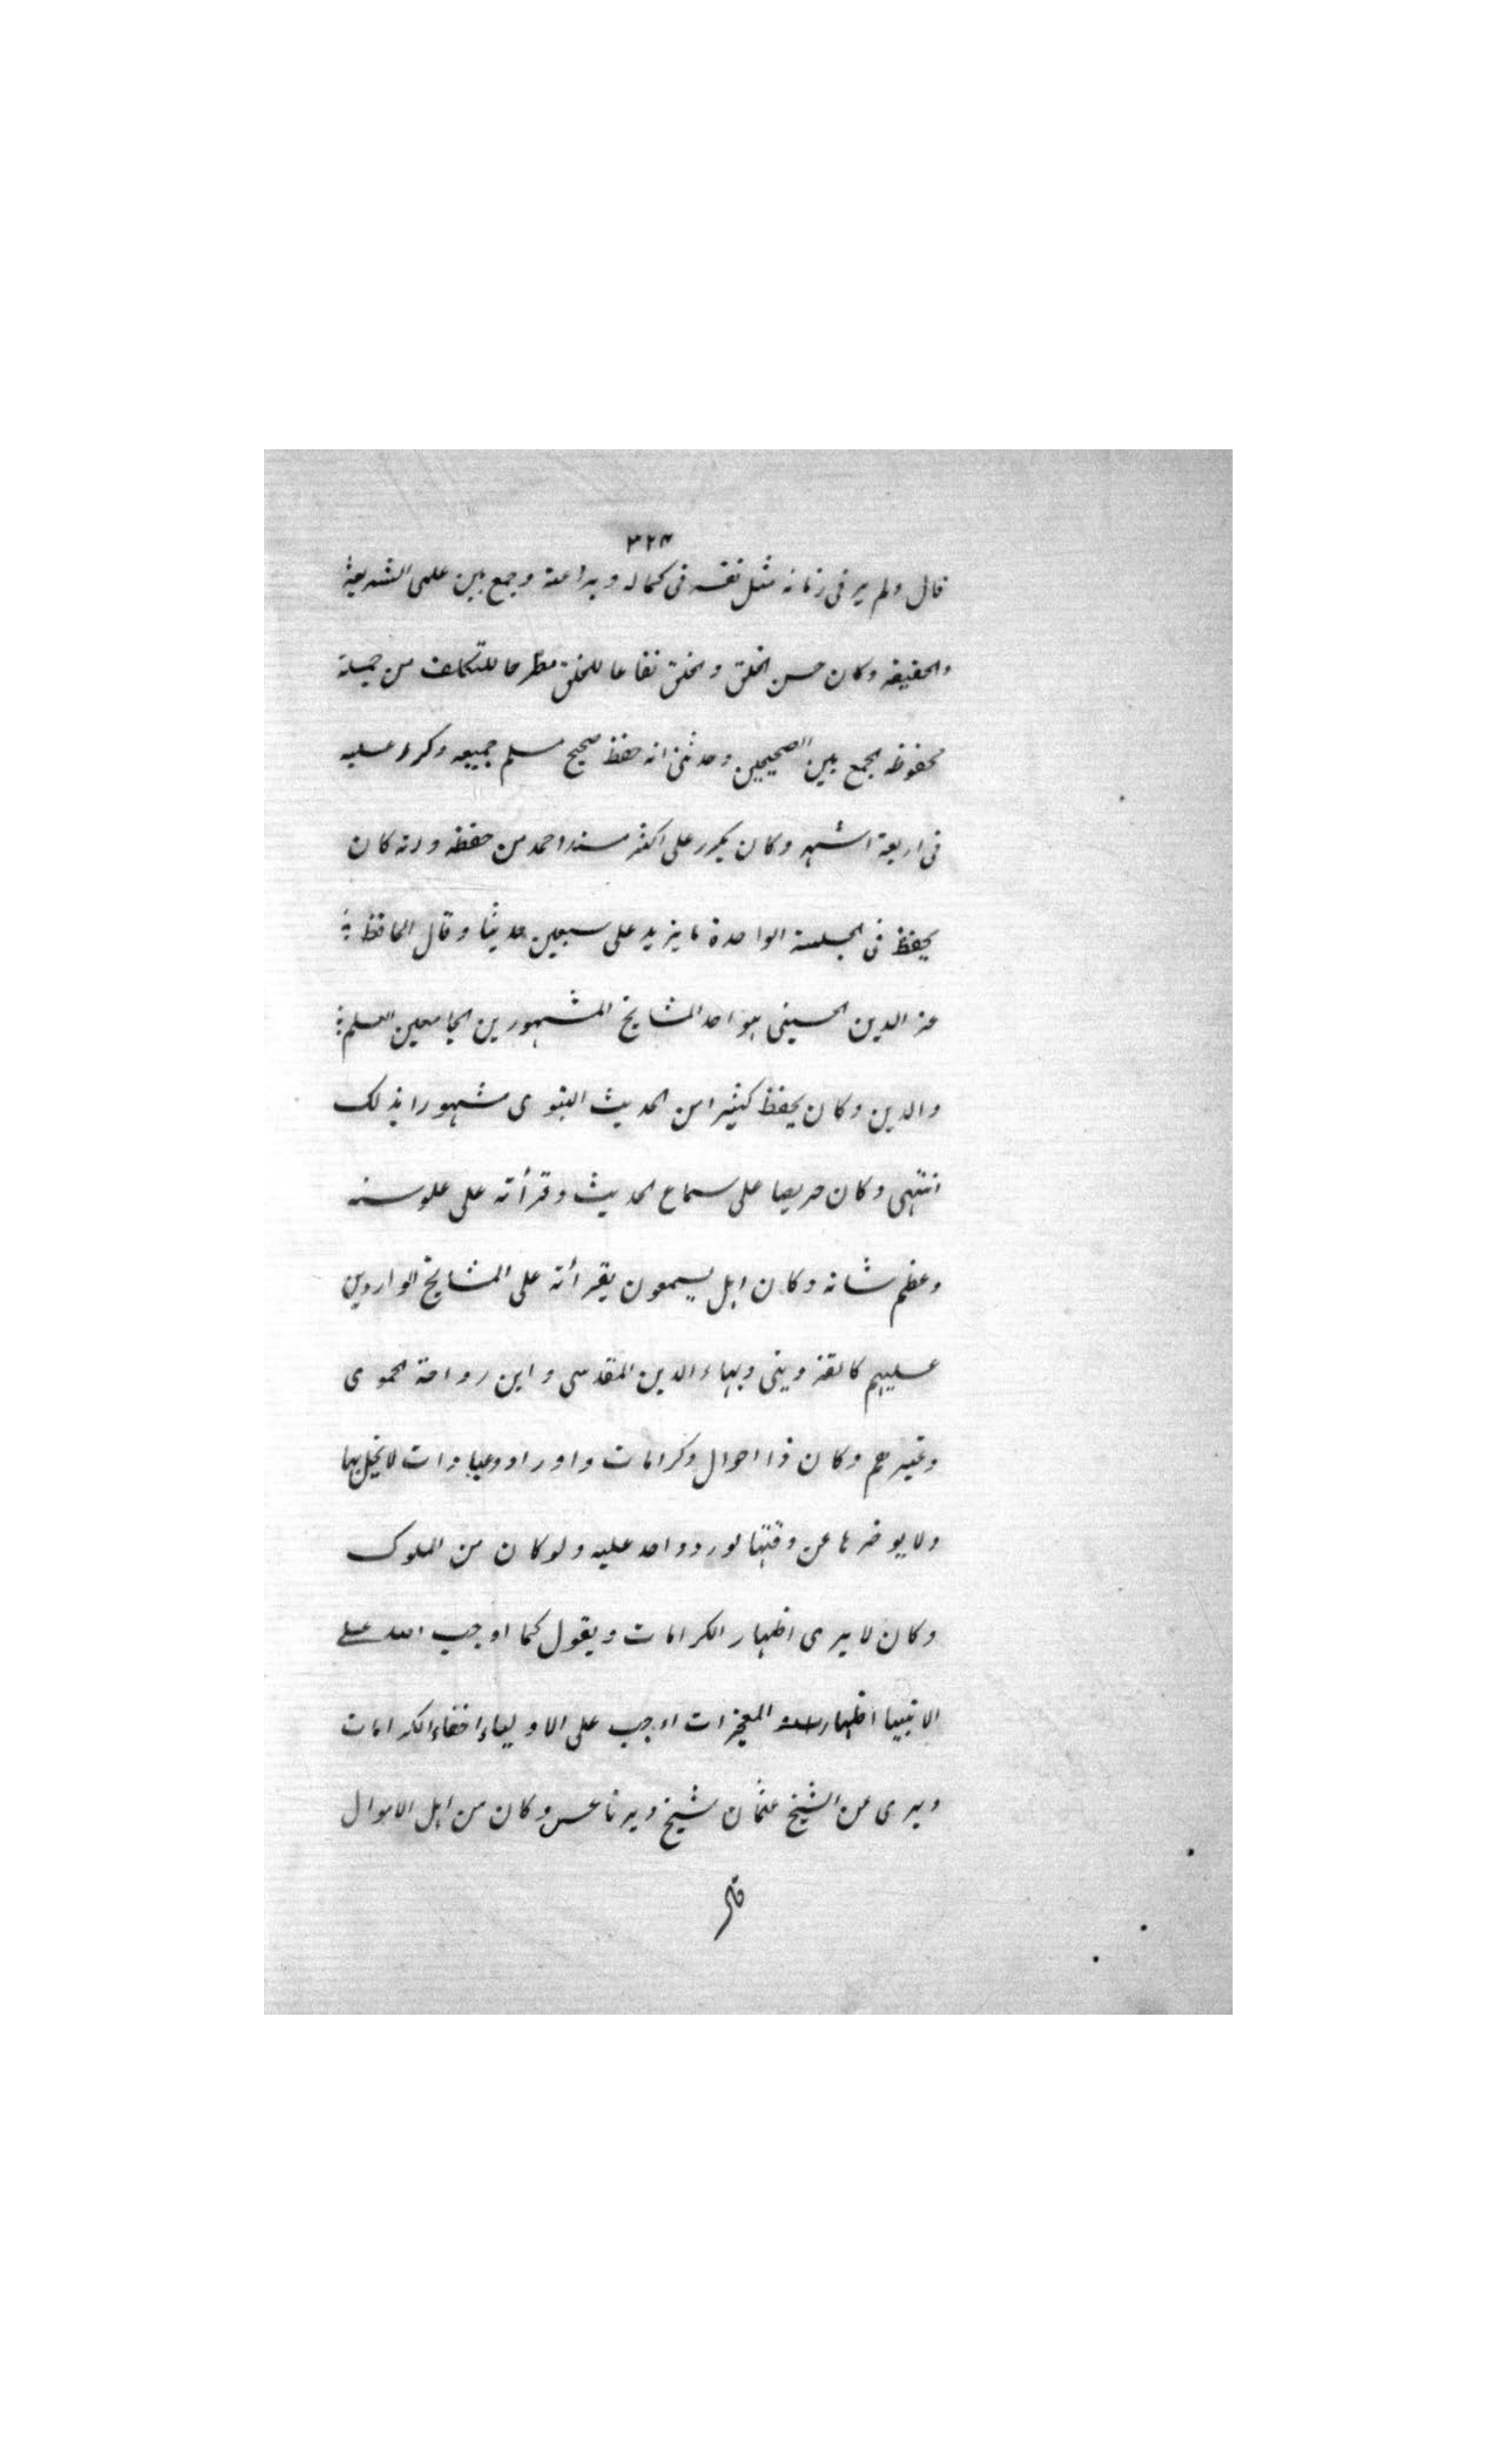 ٣٢٤
قال ولم ير فى زمانه مثل نفسه فى كماله وبراعته وجمع بين علمى الشريعة
والحقيقه وكان حسن الخلق والخلق نفاعا للخلق مطرحا للتكلف من جملة
محفوظه الجمع بين الصحيحين وحدثنى انه حفظ صحيح مسلم جميعه وكرر عليه
فى اربعة اشهر وكان يكرر على اكثر مسند احمد من حفظه وانه كان
يحفظ فى الجلسة الواحدة ما يزيد على سبعين حديثا وقال الحافظ
عز الدين الحسينى هو احد المشايخ المشهورين الجامعين العلم
والدين وكان يحفظ كثيرا من الحديث النبوى مشهورا بذلك
انتهى وكان حريصا على سماع الحديث وقرأته على علو سنه
وعظم شانه وكان اهل يسمعون بقرأته على المشايخ الواردين
عليهم كالقزوينى وبهاء الدين المقدسى وابن رواحة الحموى
وغيرهم وكان ذا احوال وكرامات واوراد وعبادات لا يخل بها
ولا يوخرها عن وقتها لورود احد عليه ولو كان من الملوك
وكان لا يرى اظهار الكرامات ويقول كما اوجب الله على
الانبيا اظهار المعجزات اوجب على الاولياء اخفاء الكرامات
ويرى عن الشيخ عثمان شيخ ديرناعس وكان من اهل الاموال
قال